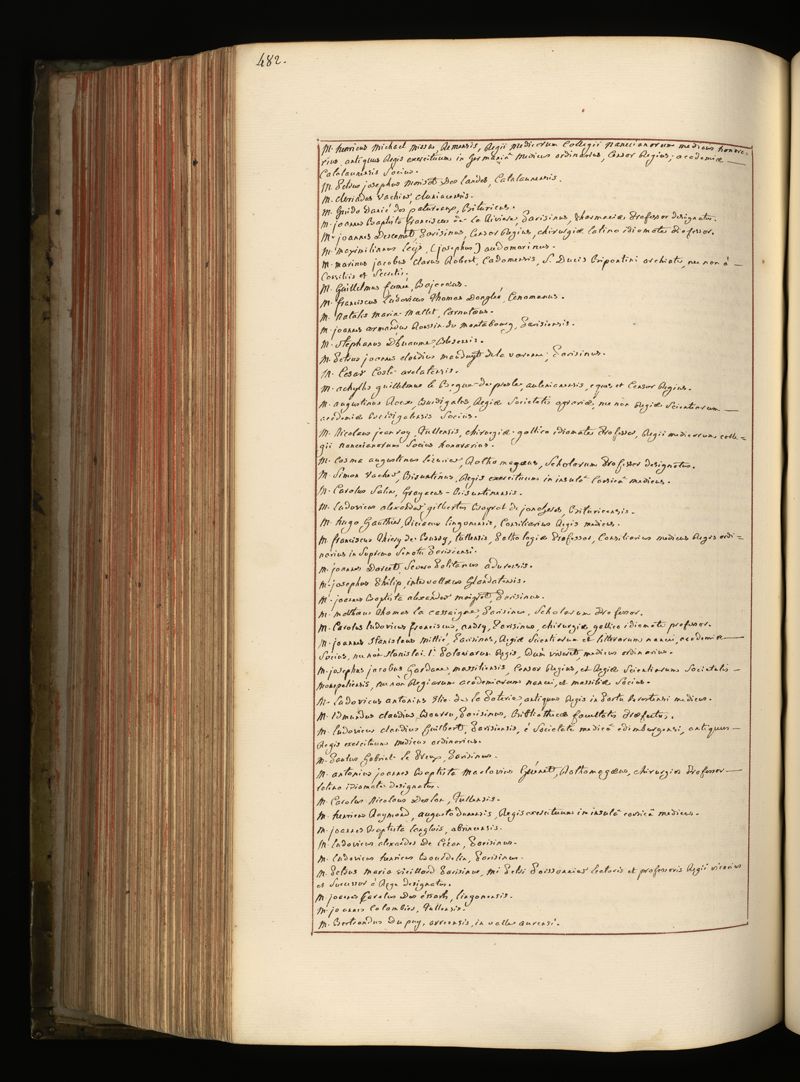 482.
M. henricus michael missa, Remensis, Regii medicorum Collegii nanceianorum medicus honora-
rius, antiquus Regis exercituum in Germaniâ medicus ordinarius, Censor Regius, academiæ
Catalaunensis Socius.
M. Petrus josephus morisot Des landes, Catalaunensis.
M. Vachier
M. Guido Danié des patureaux, Bituricus.
M. joannes Baptista franciscus de la Riviere, Parisinus, pharmaciæ Professor designatus.
M. joannes Descemet, Parisinus, Censor Regius, chirurgiæ latino idiomate Professor.
M. maximilianus (josephus) audomarinus.
M. marinus jacobus Clarus Robert, Cadomensis, S. Ducis Bipontini archiater, nec non à
Consiliis et Secretis.
M. Guillelmus fumée,
M. franciscus ludovicus Thomas Cenomanus.
M. Natalis maria mallet, Carnutæus.
M. joannes armandus Roussin de montabourg, Parisiensis.
M. Stephanus Dhuaume, Blesensis.
M. Petrus joannes claudius mauduyt de la varenne, Parisinus.
M. Cesar Coste arelatensis.
M. achylles guillelmus le Begue de presle, aurelianensis, eques et Censor Regius.
M. augustinus Roux, Burdigalus, Regiæ Societatis agrariæ, nec non Regiæ Scientiarum
academiæ Burdigalensis Socius.
M. Nicolaus jeanroy, Tullensis, chirurgiæ gallico idiomate Professor, Regii medicorum colle-
gii nanceianorum Socius honorarius.
M. Cosma augustinus Rothomagæus, Scholarum Professor designatus.
M. Simon Vacher, Bisuntinus, Regis exercituum in insulâ Corsicâ medicus.
M. Carolus Salin, Grayacus-Bisuntinensis.
M. ludovicus alexander gilbertus Bituricensis.
M. hugo Gauthier, Riceæus lingonensis, Consiliarius Regis medicus.
M. franciscus Thiery de Bussy, Tullensis, Pathologiæ Professor, Consiliarius medicus Regis ordi-
narius in Supremo Senatu Parisiensi.
M. joannes Darcet,
M. josephus Philip, Glandatensis.
M. joannes Baptista alexander maigret, Parisinus.
M. mathæus Thomas la cassaigne, Parisinus, Scholarum Professor.
M. Carolus ludovicus franciscus, andry, Parisinus, chirurgiæ gallico idiomate professor.
M. joannes Stanislaus mittié, Parisinus, Regiæ Scientiarum et litterarum nancei, academiæ
Socius, nec non Stanislai 1i Polonorum Regis, Dum viveret, medicus ordinarius.
M. josephus jacobus Gardane, massiliensis, Censor Regius, et Regiæ Scientiarum Societatis
monspeliensis, nec non Regiarum academiarum nancei, et massiliæ Socius.
M. ludovicus antonius de la Poterie, antiquus Regis in Portu medicus.
M. Edmundus claudius Bourru, Parisinus, Bibliothecæ facultatis Præfectus.
M. ludovicus claudius Guilbert, Parisiensis, è Societate medicâ edimburgensi, antiquus
Regis exercituum medicus ordinarius.
M. Paulus Gabriel le Preux, Parisinus.
M. antonius joannes Baptista maclovius Guenet, Rothomagæus, chirurgiæ Professor
latino idiomate designatus.
M. Carolus Nicolaus Deslon, Tullensis.
M. henricus Raymond, augustodunensis, Regis exercituum in insulâ corsicâ medicus.
M. joannes Baptista langlois, abrincensis.
M. ludovicus alexander De Cézan, Parisinus.
M. ludovicus henricus Bourdelin, Parisinus.
M. Petrus maria vieillard Parisinus, Petri lectoris et professoris Regii vicarius
et Successor à Rege designatus.
M. joannes Carolus Des essartz, lingonensis.
M. joannes Colombier, Tullensis.
M. Bertrandus Dupuy, in valle aurensi.